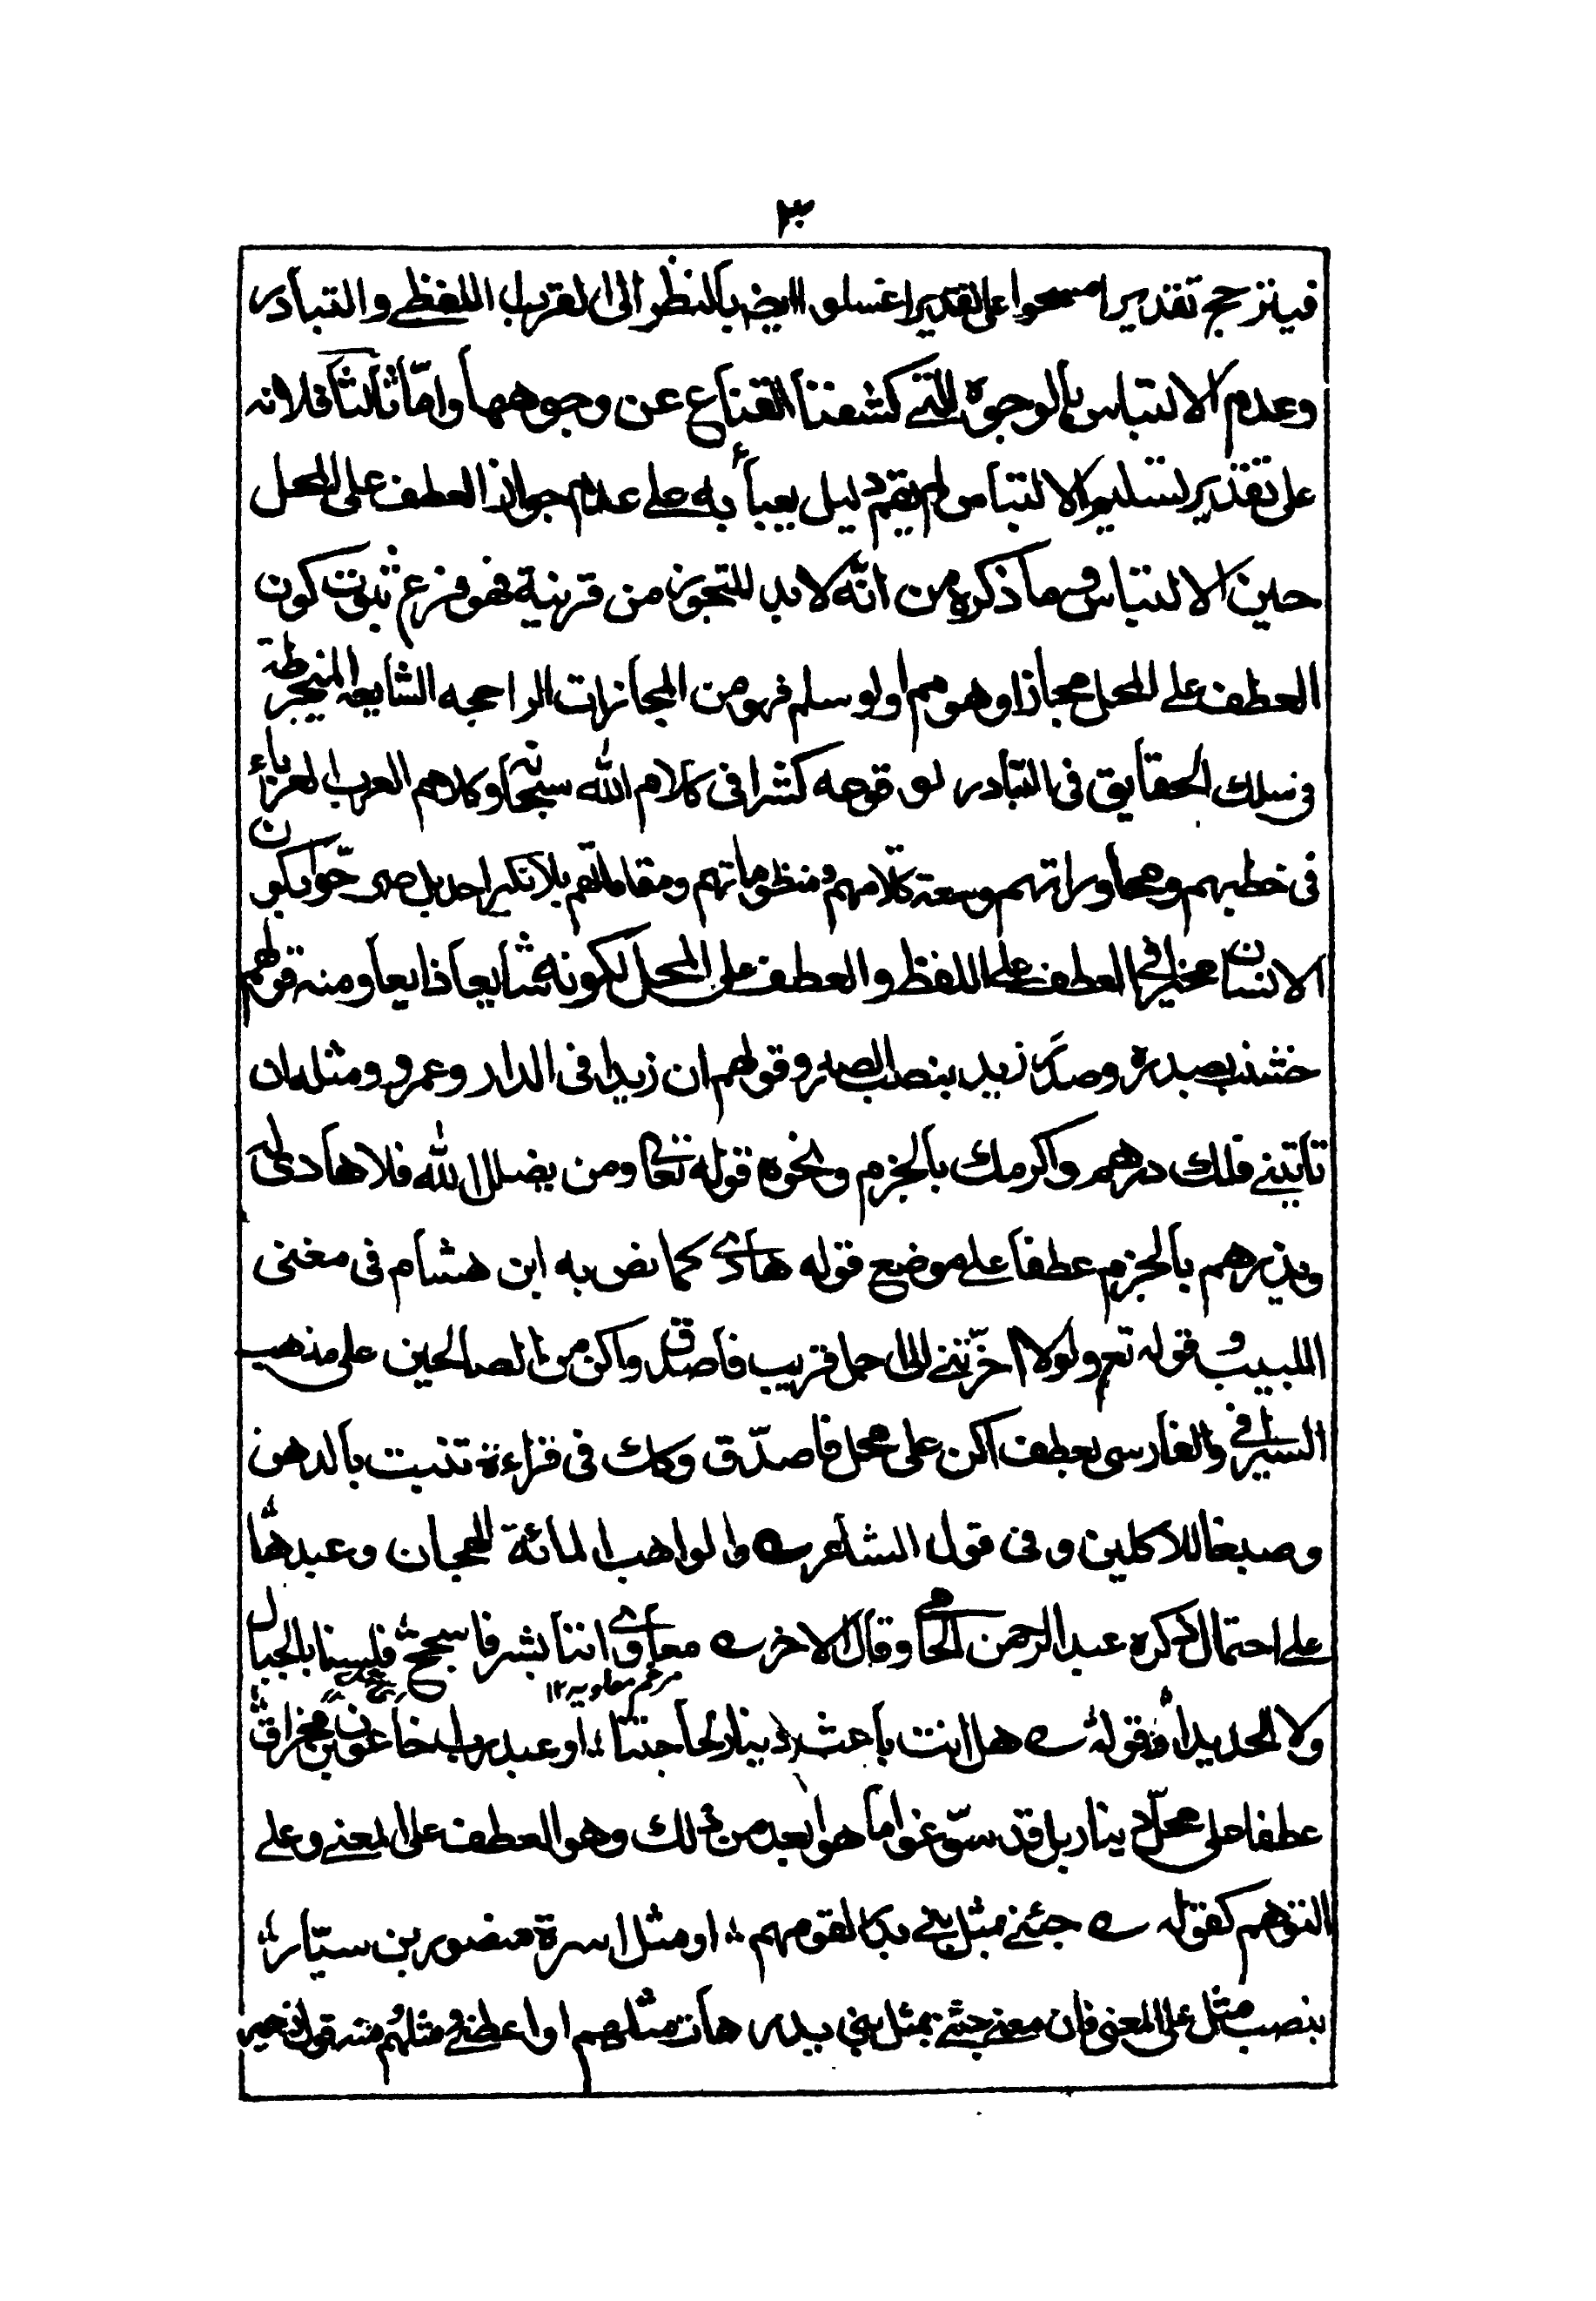 ٣
فيترجح تقدير امسحوا على تقدير اغسلوا ايضه بالنظر الى القرب اللفظي والتبادر
وعدم الالتباس بالوجوه التي كشفنا القناع عن وجوهها وامّا ثالثا فلانه
على تقدير تسليم الالتباس لم يقم دليل يعبأ به على عدم جواز العطف على المحل
حين الالتباس وما ذكره من انّه لا بد للتجوز من قرينة فهو فرع ثبوت كون
العطف على المحل مجازا وهو مم او لو سلم فهو من المجازات الراجحه الشايعه المنخرطة
فى سلك الحقايق فى التبادر لوقوعه كثيرا فى كلام الله سبحانه وكلام العرب العرباء
فى خطبهم ومحاوراتهم وسعة كلامهم ومنظوماتهم ومقاماتهم بلا نكير احد بل صرحوا بكون
الانسان مخيرا فى العطف على اللفظ والعطف على المحل لكونه شايعا ذايعا ومنه قولهم
خشنت بصدره وصدر زيد بنصب الصدر وقولهم ان زيدا فى الدار وعمرو ومثله ان
تاتيني فلك درهم واكرمك بالجزم ونحوه قوله تعالى ومن يضلل الله فلا هادى له
ويذرهم بالجزم عطفا على موضع قوله هادى كما نص به ابن هشام فى مغنى
اللبيب وقوله تع ولولا اخرّتني الى اجل قريب فاصدق واكن من الصالحين على مذهب
السيرافي والفارسى بعطف اكن على محل فاصدّق وكك فى قراءة تنبت بالدهن
وصبغا للاكلين وفى قول الشاعر ے والواهب المائة الهجان وعبدها
على احتمال ذكره عبد الرحمن الجامي وقال الاخر ے معاوى اننا بشر فاسجح فلسنا بالجبال
مرخم معاويه ١٢
ولا الحديدا وقوله ے هل انت باعث دينار لحاجتنا او عبد رب اخا عون بن مخراق
عطفا على محلّ دينار بل قد سوّغوا ما هو ابعد من ذلك وهو العطف على المعنى وعلى
التوهم كقوله ے جئني بمثل بني بدر لقومهم او مثل اسرة منصور بن سيّار
بنصب مثل على المعنى فان معنى جئني بمثل بني بدر هات مثلهم او اعطني مثلهم منه قول